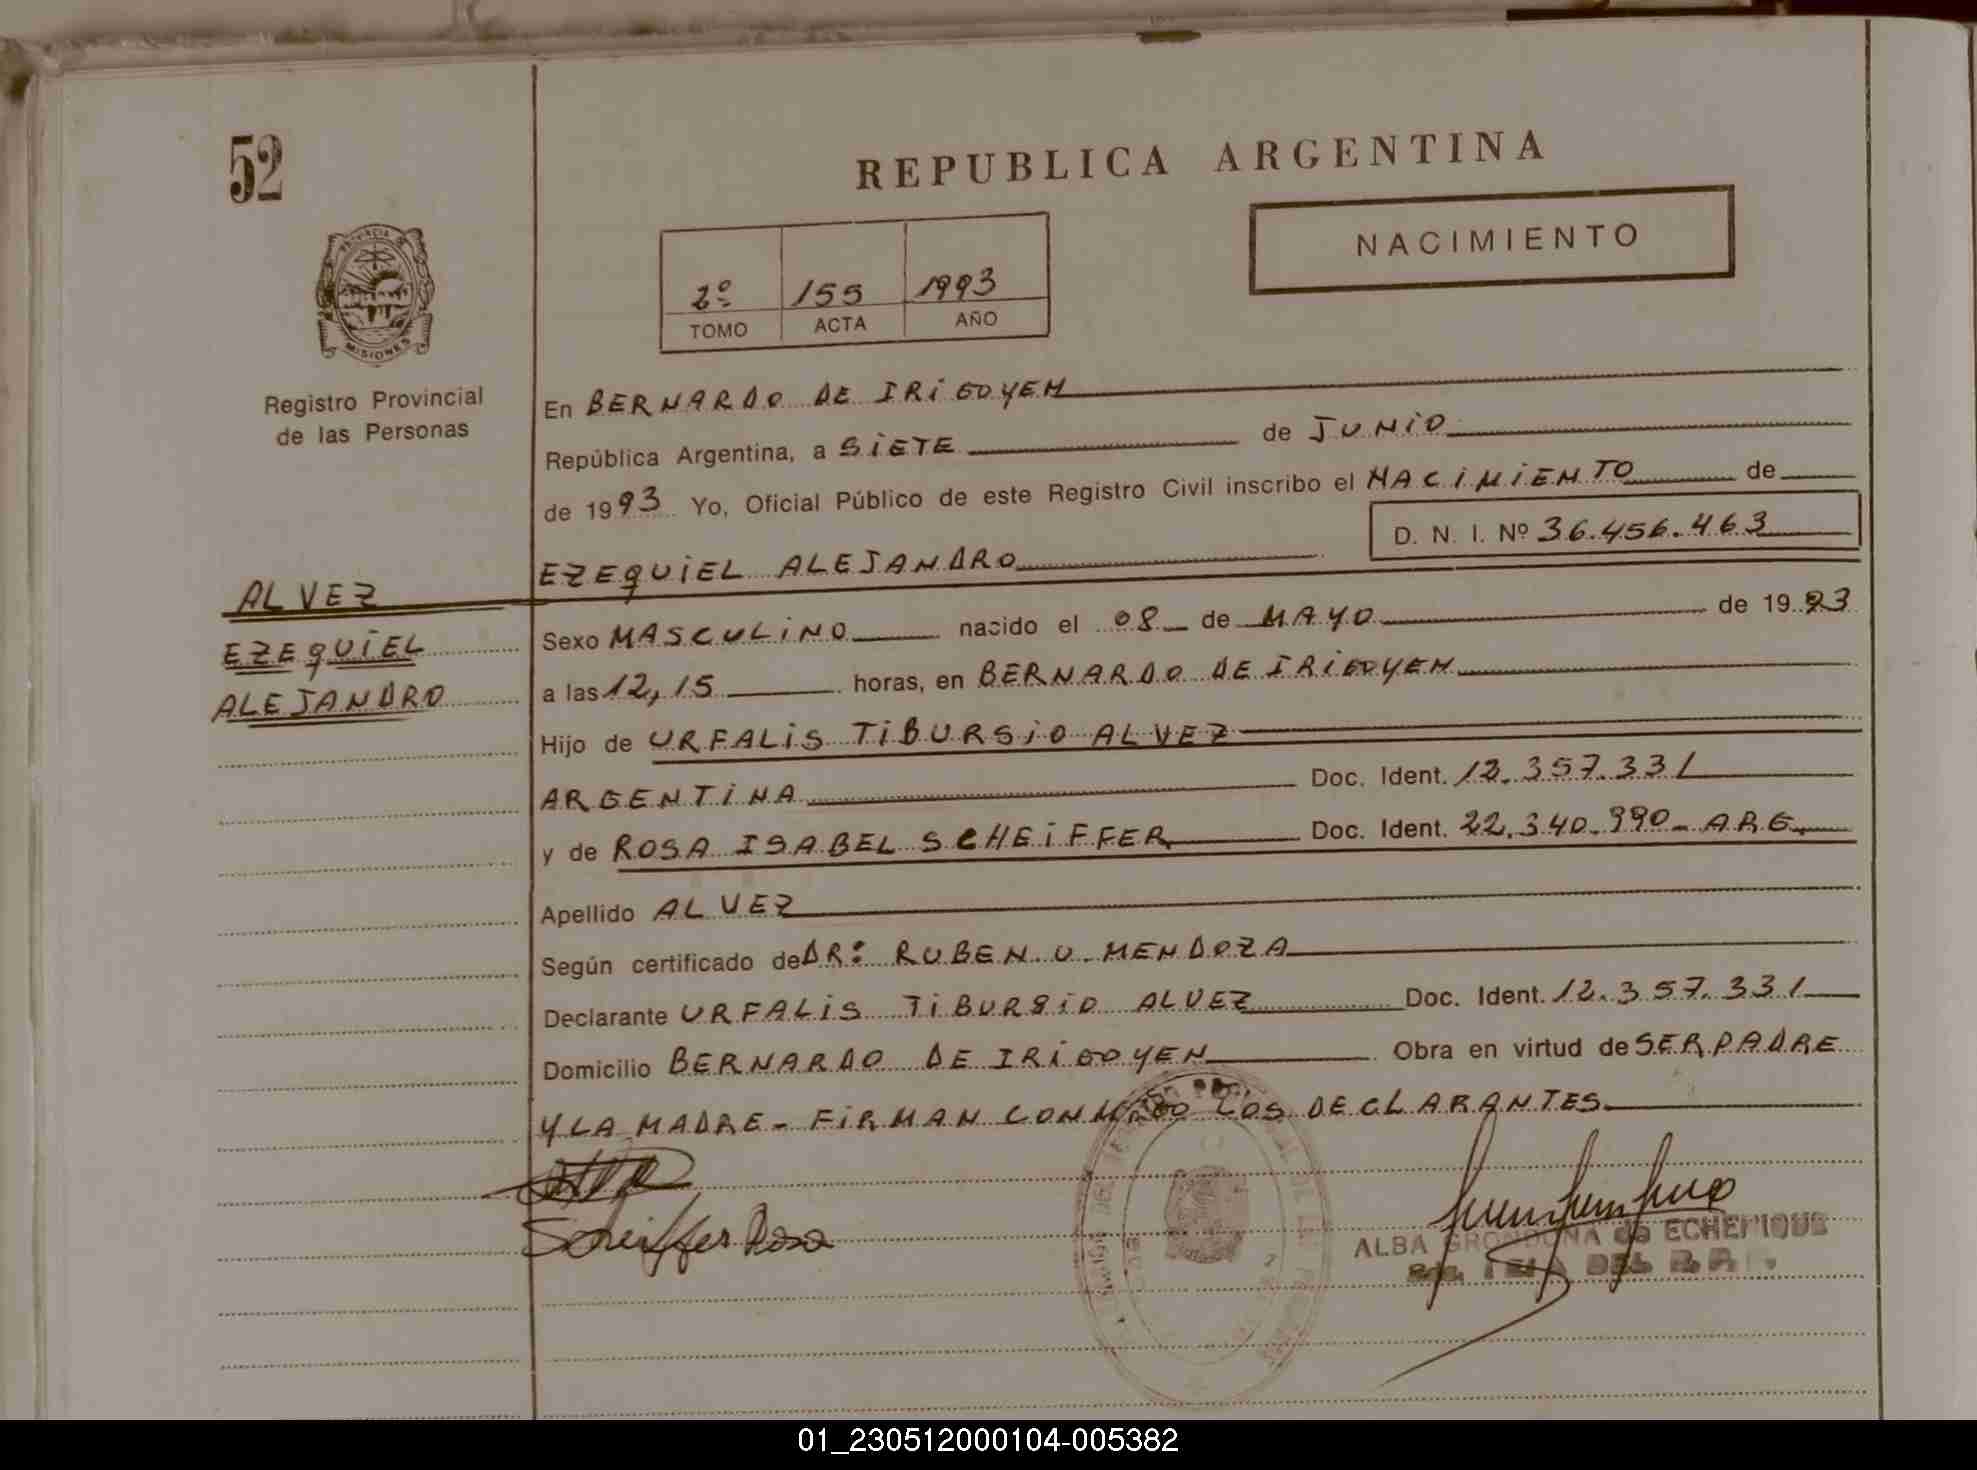 52
REPUBLICA ARGENTINA
NACIMIENTO
2º 155 1993
TOMO ACTA AÑO
PROVINCIA DE
MISIONES
Registro Provincial
de las Personas
En BERNARDO DE IRIGOYEN
República Argentina, a SIETE de JUNIO
de 1993 Yo, Oficial Público de este Registro Civil inscribo el NACIMIENTO de
D. N. I. Nº 36.456.463
EZEQUIEL ALEJANDRO
ALVEZ
EZEQUIEL
ALEJANDRO
Sexo MASCULINO nacido el 08 de MAYO de 1993
a las 12,15 horas, en BERNARDO DE IRIGOYEN
Hijo de URFALIS TIBURSIO ALVEZ
ARGENTINA Doc. Ident. 12.357.331
y de ROSA ISABEL SCHEIFFER Doc. Ident. 22.340.990- ARG.
Apellido ALVEZ
Según certificado de DR: RUBEN U. MENDOZA
Declarante URFALIS TIBURSIO ALVEZ Doc. Ident. 12.357.331
Domicilio BERNARDO DE IRIGOYEN Obra en virtud de SER PADRE
Y LA MADRE- FIRMAN CONMIGO LOS DECLARANTES
Scheiffer Rosa
ALBA GRONDONA de ECHENIQUE
DEL R.P.
01_230512000104-005382